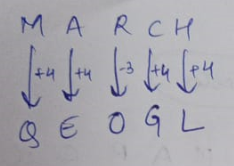 M A R C H
+4 +4 -3 +4 +4
Q E O G L